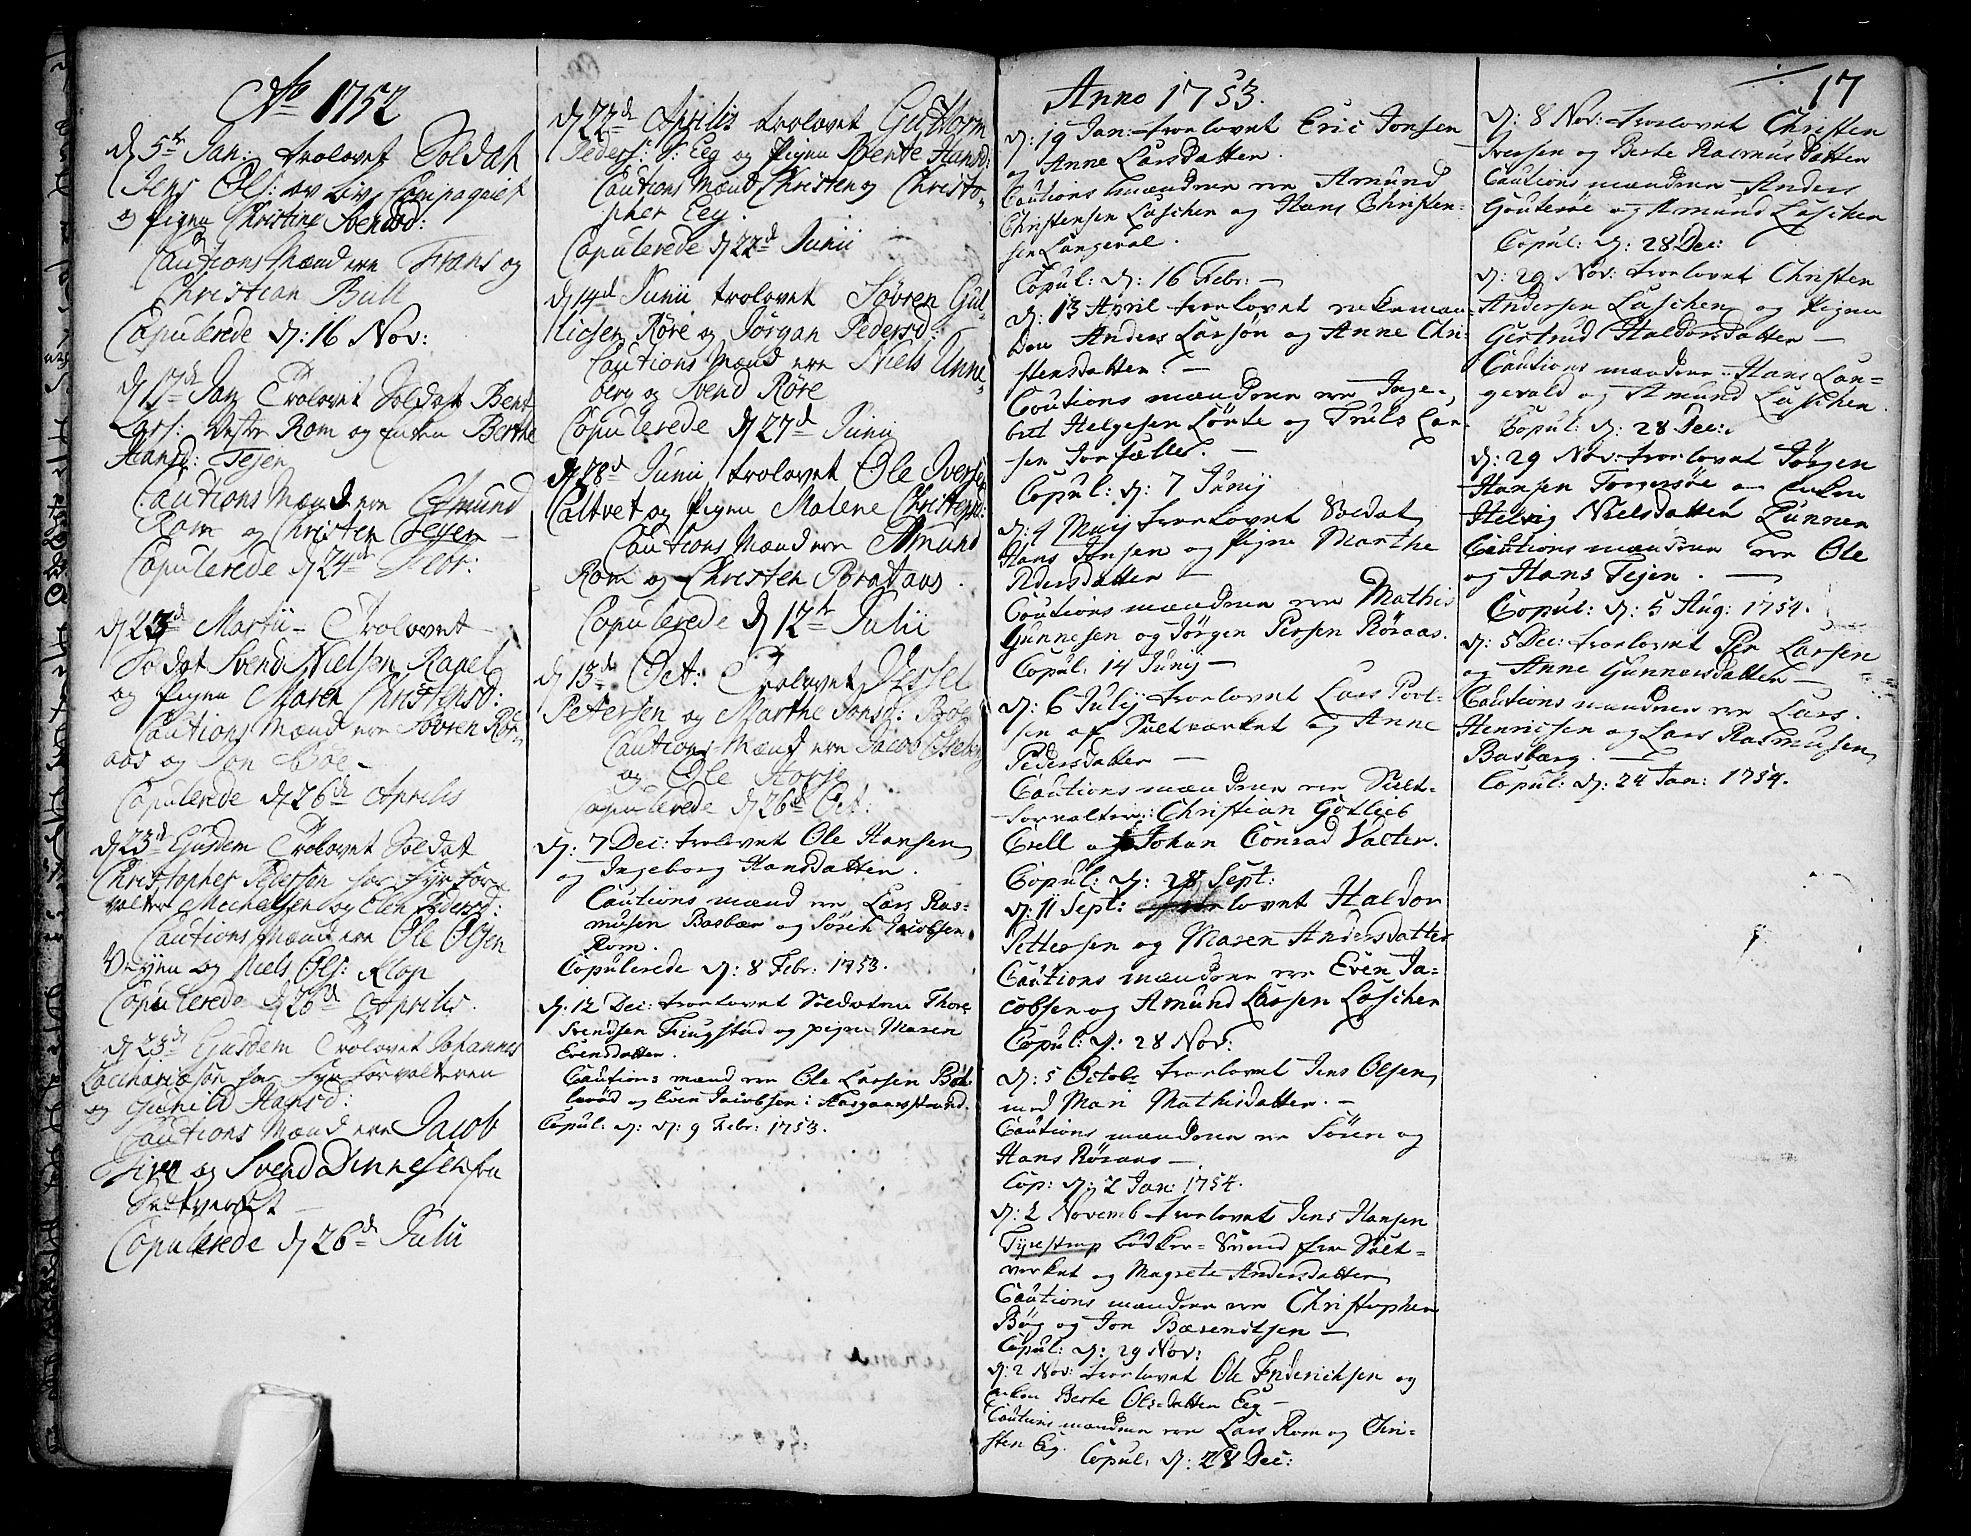 Ao 1752
d 5te Jan: trolovet Soldat
Jens Ols: av Liv Compagniet
og Pigen Christine Svensd:
Cautions Mænd ere Frans og
Christian Bull
Copulerede d: 16 Nov:
d 17de Jan Trolovet Soldat Bent
Lars: Vestre Rom og Enken Berthe
Hansd: Tejen
Cautions Mænd ere Amund
Rom og Christen Tejen
Copulerede d 24de Febr:
d 23d Martii Trolovet
Soldat Svend Nielsen Ravel
og Pigen Maren Christensd:
Cautions Mænd ere Søvren Rør-
aas og Jon Bøe
Copulerede d 26de Aprilis
d 23d Ejusdem Trolovet Soldat
Christopher Pedersen hos Fyrfor
valter Michelsen og Elen Pedersd:
Cautions Mænd ere Ole Olsen
og Niels Ols: Klop
Copulerede d 26de Aprilis
d 23d Ejusdem Trolovet Johannes
Zacchariæsøn hos Fyr forvalteren
og Gunild Hansd:
Cautions Mænd ere Jacob
og Svend Dinnesen fra
Saltverket
Copulerede d 26de Julii
d 22de Aprilis trolovet Guttorm
Peders: S: Eeg og Pigen Bente Hansd:
Cautions Mænd Christen og Christo-
pher Eeg.
Copulerede d 22d Junii
d 14d Junii trolovet Søvren Gul-
lichsen Røre og Jørgan Pedersd:
Cautions Mænd ere Niels Unne-
berg og Svend Røre
Copulerede d 27d Junii
d 28d Junii trolovet Ole Iversen
Caltvet og Pigen Malene Christensd:
Cautions Mænd ere Amund
Rom og Christen Brataas.
Copulerede d 12te Julii
d 13de Oct: Trolovet Vessel
Petersen og Marthe Jonsd: Bøe
Cautions Mænd ere Jacob
og Ole Horje
Copulerede d 26d Oct:
d: 7 Dec: trolovet Ole Hansen
og Ingeborg Hansdatter.
Cautions mænd ere Lars Ras-
musen Basbær og Sören Jacobsen
Rom.
Copulerede d: 8 Febr: 1753.
d: 12 Dec: trorlovet Soldaten Thore
Svendsen Fiugstad og pigen Maren
Evensdatter.
Cautions mænd ere Ole Larsen Bøl-
lerød og Even Jacobsen i Aasgaarstrand.
Copul: d: d: 9 Febr: 1753.
Anno 1753.
d: 19 Jan: trorlovet Eric Jonsen
og Anne Larsdatter.
Cautions mændene ere Amund
Christensen Laschen og Hans Christen-
sen Langeval.
Copul: d: 16 Febr: —
d: 13 April trorlovet enkeman-
den Anders Larsøn og Anne Chri-
stensdatter: —
Cautions mændene ere Inge-
bret Helgesen Lørte og Truls Lar-
sen Jorfalles. —
Copul: d: 7 Junij
d: 4 Maij trorlovet Soldat
Hans Jonsen og Pigen Marthe
Pedersdatter —
Cautions mændene ere Mathis
Gunnesen og Jørgen Persen Røraas.
Copul: 14 Junij —
d: 6 Julij trorlovet Lars Povl-
sen af Saltværket og Anne
Pedersdatter —
Cautions mændene ere Salt-
forvalter: Christian Gotlieb
Crell og Johan Conrad Valter.
Copul: d: 28 Sept:
d: 11 Sept: trorlovet Haldor
Pettersen og Maren Andersdatter
Cautions mændene ere Even Ja-
cobsen og Amund Larsen Laschen
Copul: d: 28 Nov:
d: 5 Octob: trorlovet Jens Olsen
med Mari Mathisdatter. —
Cautions mændene ere Sören og
Hans Røraas —
Cop: d: 2 Jan: 1754.
d: 2 Novemb trorlovet Jens Hansen
Tyrestrup bødker-Svend fra Salt-
verket og Magrete Andersdatter
Cautions mændene ere Christopher
Bøg og Jon Bærentsen —
Copul: d: 29 Nov:
d: 2 Nov: trorlovet Ole Frderichsen og
enken Berte Olsdatter Eeg —
Cautions mændene ere Lars Rom og Chri-
sten Eeg.
Copul: d: 28 Dec:
17
d: 8 Nov: trorlovet Christen
Iversen og Berte Rasmusdatter
Cautions mændene Anders
Gouterøe og Amund Laschen
Copul: d: 28 Dec:
d: 29 Nov: trorlovet Christen
Andersen Laschen og Pigen
Giertrud Haldorsdatter —
Cautions mændene: Hans Lan-
gevald og Amund Laschen.
Copul: d: 28 Dec:
d: 29 Nov: trorlovet Jørgen
Hansen Tomersøe og Enken
Helvig Nielsdatter Lunnen
Cautions mændene ere Ole
og Hans Tejen. —
Copul: d: 5 Aug: 1754.
d: 5 Dec: trorlovet Per Larsen
og Anne Gunnersdatter —
Cautions mændene ere Lars
Henricsen og Lars Rasmusen
Basbærg. —
Copul: d: 24 Jan: 1754.